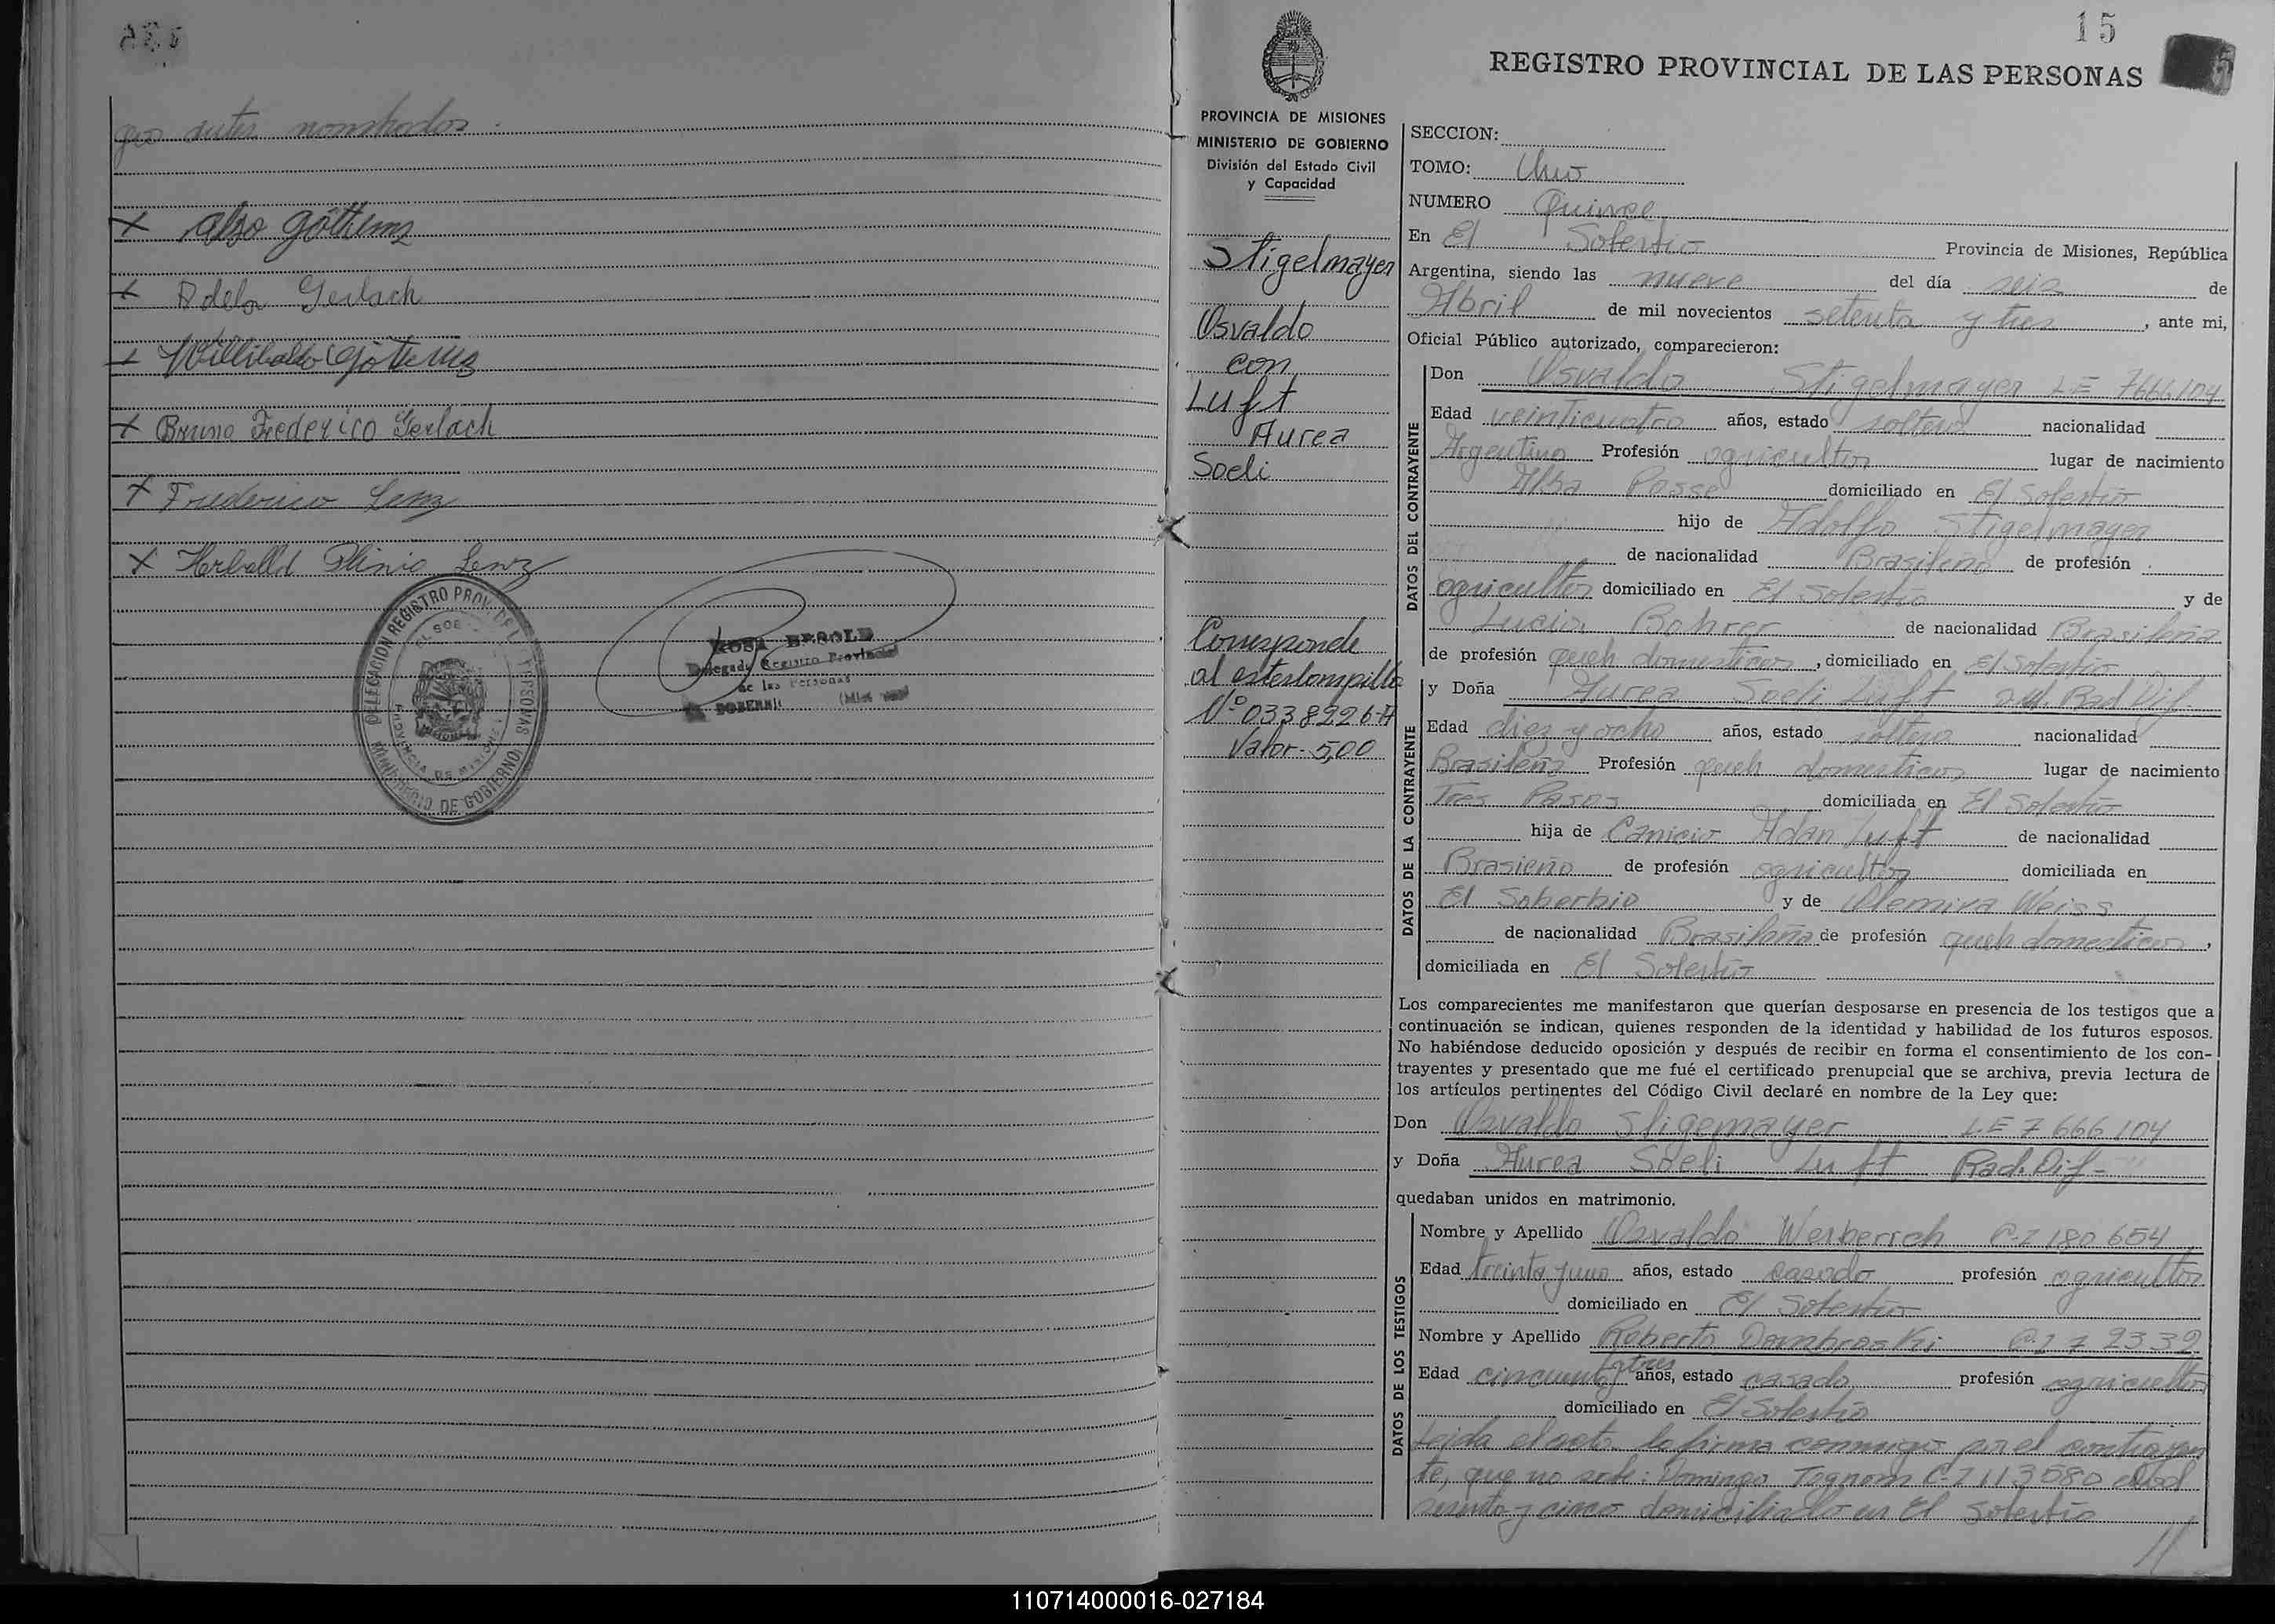 gos antes nombrados.
+ Also Göttems
+ Adela Gerlach
+ Willibaldo Göttems
+ Bruno Frederico Gerlach
+ Frederico Lenz
+ Herbaldo Plinio Lenz
DELEGACION REGISTRO PROV. DE L PERSONAS
MINISTERIO DE GOBIERNO
PROVINCIA DE MISIONES
ROSA
Delegado Registro Provincial
de las Personas
15
REGISTRO PROVINCIAL DE LAS PERSONAS
PROVINCIA DE MISIONES
MINISTERIO DE GOBIERNO
División del Estado Civil
y Capacidad
Stigelmayer
Osvaldo
con
Luft
Aurea
Soeli
Corresponde
al estampilla
Nº 0338226-H
Valor- 5,00
SECCION:
TOMO: Uno
NUMERO Quince
En El Soberbio Provincia de Misiones, República
Argentina, siendo las nueve del día seis de
Abril de mil novecientos setenta y tres, ante mi,
Oficial Público autorizado, comparecieron:
DATOS DEL CONTRAYENTE
Don Osvaldo Stigelmayer LE 7666104
Edad veinticuatro años, estado soltero nacionalidad
Argentino Profesión agricultor lugar de nacimiento
Alba Posse domiciliado en El Soberbio
hijo de Adolfo Stigelmayer
de nacionalidad Brasileño de profesión
agricultor domiciliado en El Soberbio y de
Lucia Bohrer de nacionalidad Brasileña
de profesión queh domesticos, domiciliado en El Soberbio
DATOS DE LA CONTRAYENTE
y Doña Aurea Soeli Luft Rad Dif.
Edad diez y ocho años, estado soltera nacionalidad
Brasileña Profesión queh domesticos lugar de nacimiento
Tres Pasos domiciliada en El Soberbio
hija de Canicio Adan Luft de nacionalidad
Brasieño de profesión agricultor domiciliada en
El Soberbio y de Olemira Weiss
de nacionalidad Brasileña de profesión queh domesticos,
domiciliada en El Soberbio
Los comparecientes me manifestaron que querían desposarse en presencia de los testigos que a
continuación se indican, quienes responden de la identidad y habilidad de los futuros esposos.
No habiéndose deducido oposición y después de recibir en forma el consentimiento de los con-
trayentes y presentado que me fué el certificado prenupcial que se archiva, previa lectura de
los artículos pertinentes del Código Civil declaré en nombre de la Ley que:
Don Osvaldo Stigemayer LE 7 666 104
y Doña Aurea Soeli Luft Rad. Dif-
quedaban unidos en matrimonio.
DATOS DE LOS TESTIGOS
Nombre y Apellido Osvaldo Werberich C-I 180 654
Edad treinta y uno años, estado casado profesión agricultor
domiciliado en El Soberbio
Nombre y Apellido Roberto Dombroski C.I 7 2332
Edad cincuenta y tres años, estado casado profesión agricultor
domiciliado en El Soberbio
Leida el acta la firma conmigo por el contrayen
te, que no sabe: Domingo Tognom C-I 113580 edad
sesenta y cinco domiciliado en El Soberbio
//
110714000016-027184